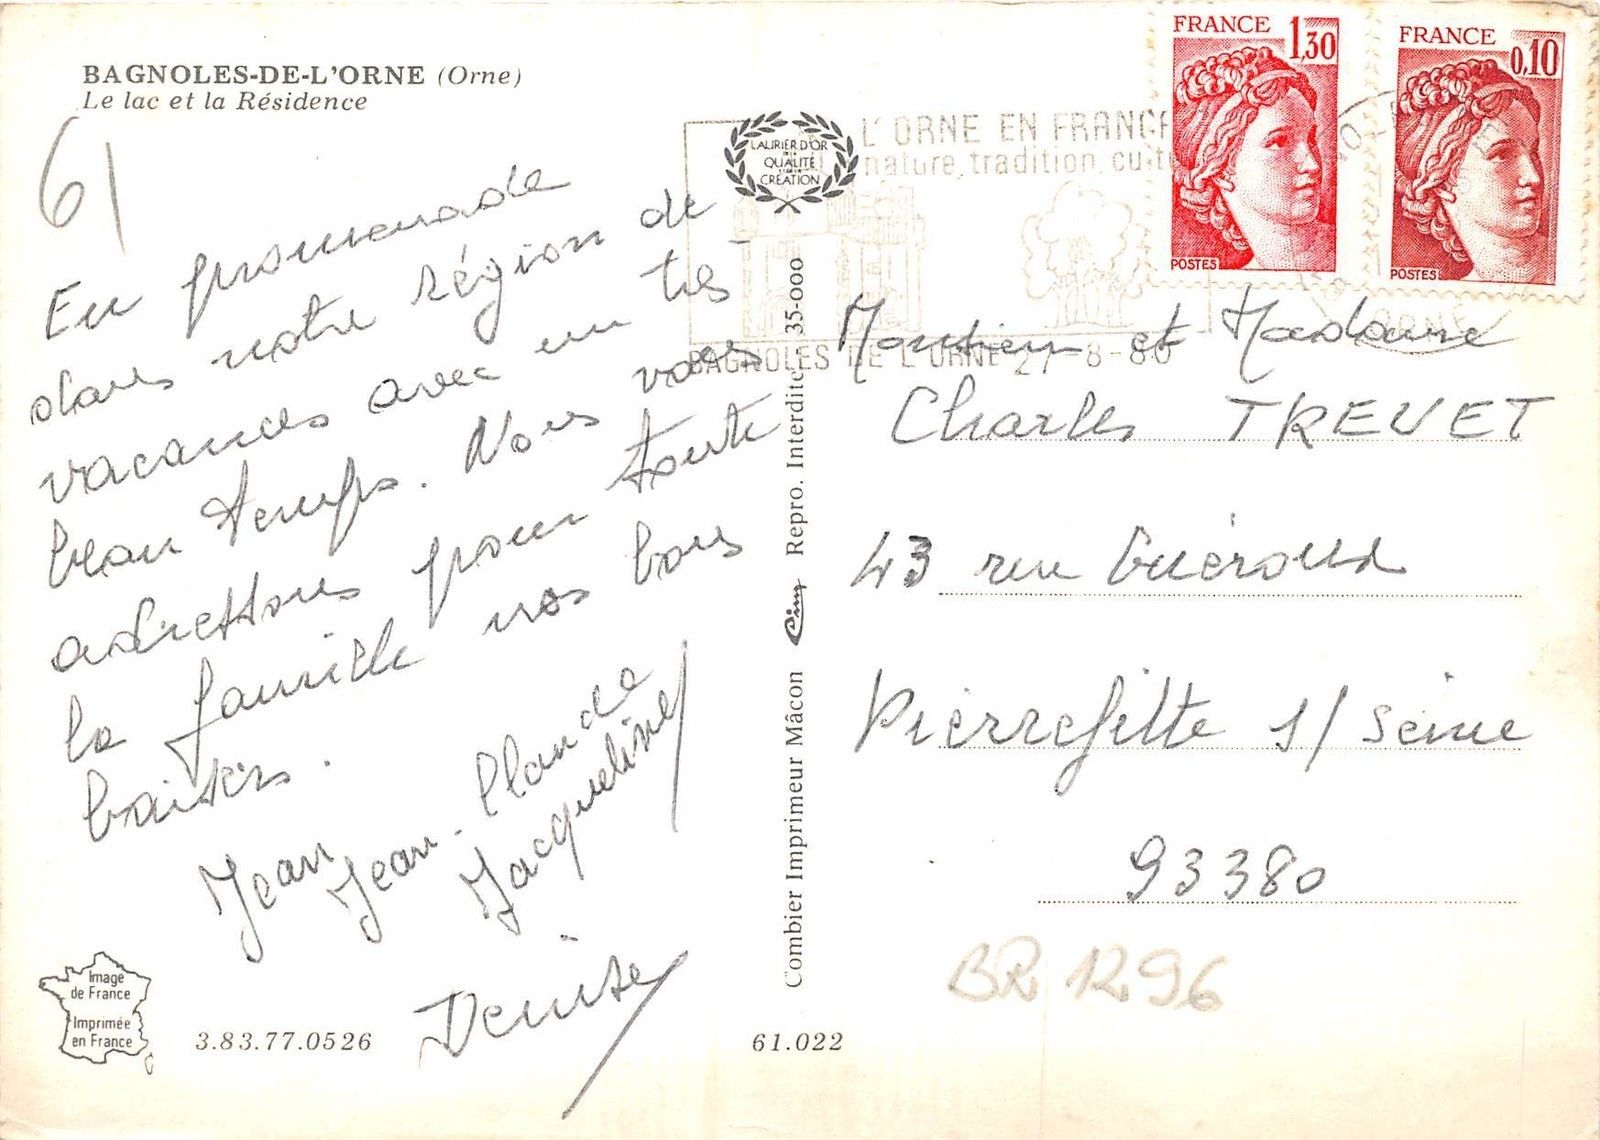 BAGNOLES-DE-L'ORNE (Orne)
Le lac et la Résidence
61
En promenade
dans notre région de
vacances avec un très
beau temps. Nous vous
adressons pour toute
la famille nos bons
baisers.
Jean
Jean-Claude
Jacqueline
Denise
Image
de France
Imprimée
en France
3.83.77.0526
61.022
Combier Imprimeur Mâcon Cim Repro. Interdite 35-000
LAURIER D'OR
DE LA
QUALITÉ
CREATION
L'ORNE EN FRANCE
nature, tradition, cult
BAGNOLES DE L'ORNE 27-8-80
FRANCE 1,30
POSTES
FRANCE 0,10
POSTES
ORNE
Monsieur et Madame
Charles TREVET
43 rue Guéroux
Pierrefitte s/ Seine
93380
BR 1296